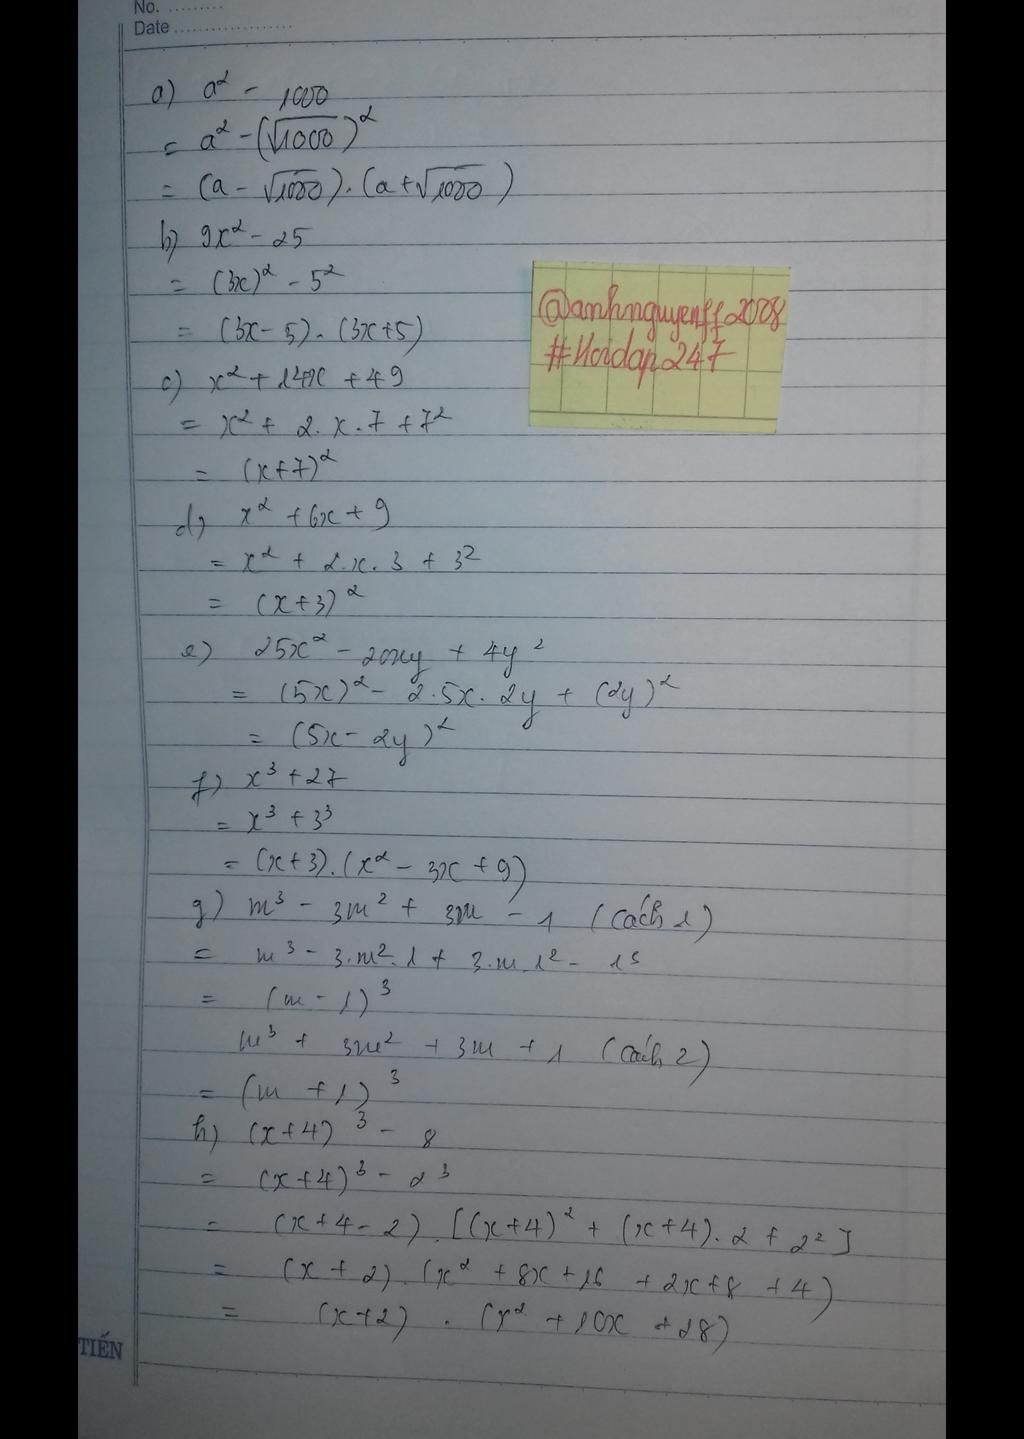 No. .........
Date ....................
a) a² - 1000
= a² - (√1000)²
= (a - √1000).(a + √1000)
b) 9x² - 25
= (3x)² - 5²
= (3x - 5).(3x + 5)
@anhnguyenff2008
#Hoidap247
c) x² + 14x + 49
= x² + 2.x.7 + 7²
= (x+7)²
d) x² + 6x + 9
= x² + 2.x.3 + 3²
= (x+3)²
e) 25x² - 20xy + 4y²
= (5x)² - 2.5x.2y + (2y)²
= (5x - 2y)²
f) x³ + 27
= x³ + 3³
= (x+3).(x² - 3x + 9)
g) m³ - 3m² + 3m - 1 (cách 1)
= m³ - 3.m².1 + 3.m.1² - 1³
= (m - 1)³
m³ + 3m² + 3m + 1 (cách 2)
= (m + 1)³
h) (x+4)³ - 8
= (x+4)³ - 2³
= (x+4-2).[(x+4)² + (x+4).2 + 2²]
= (x+2).(x² + 8x + 16 + 2x + 8 + 4)
= (x+2).(x² + 10x + 28)
TIẾN